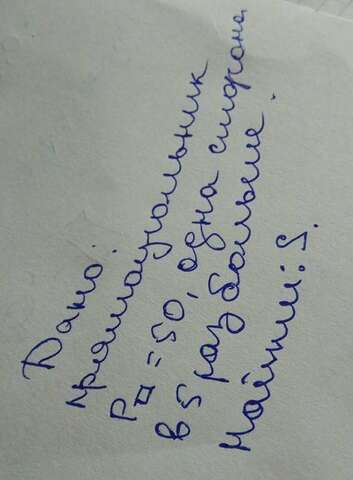 Дано:
прямоугольник
P▭ = 50, одна сторона
в 5 раз больше.
Найти: S.